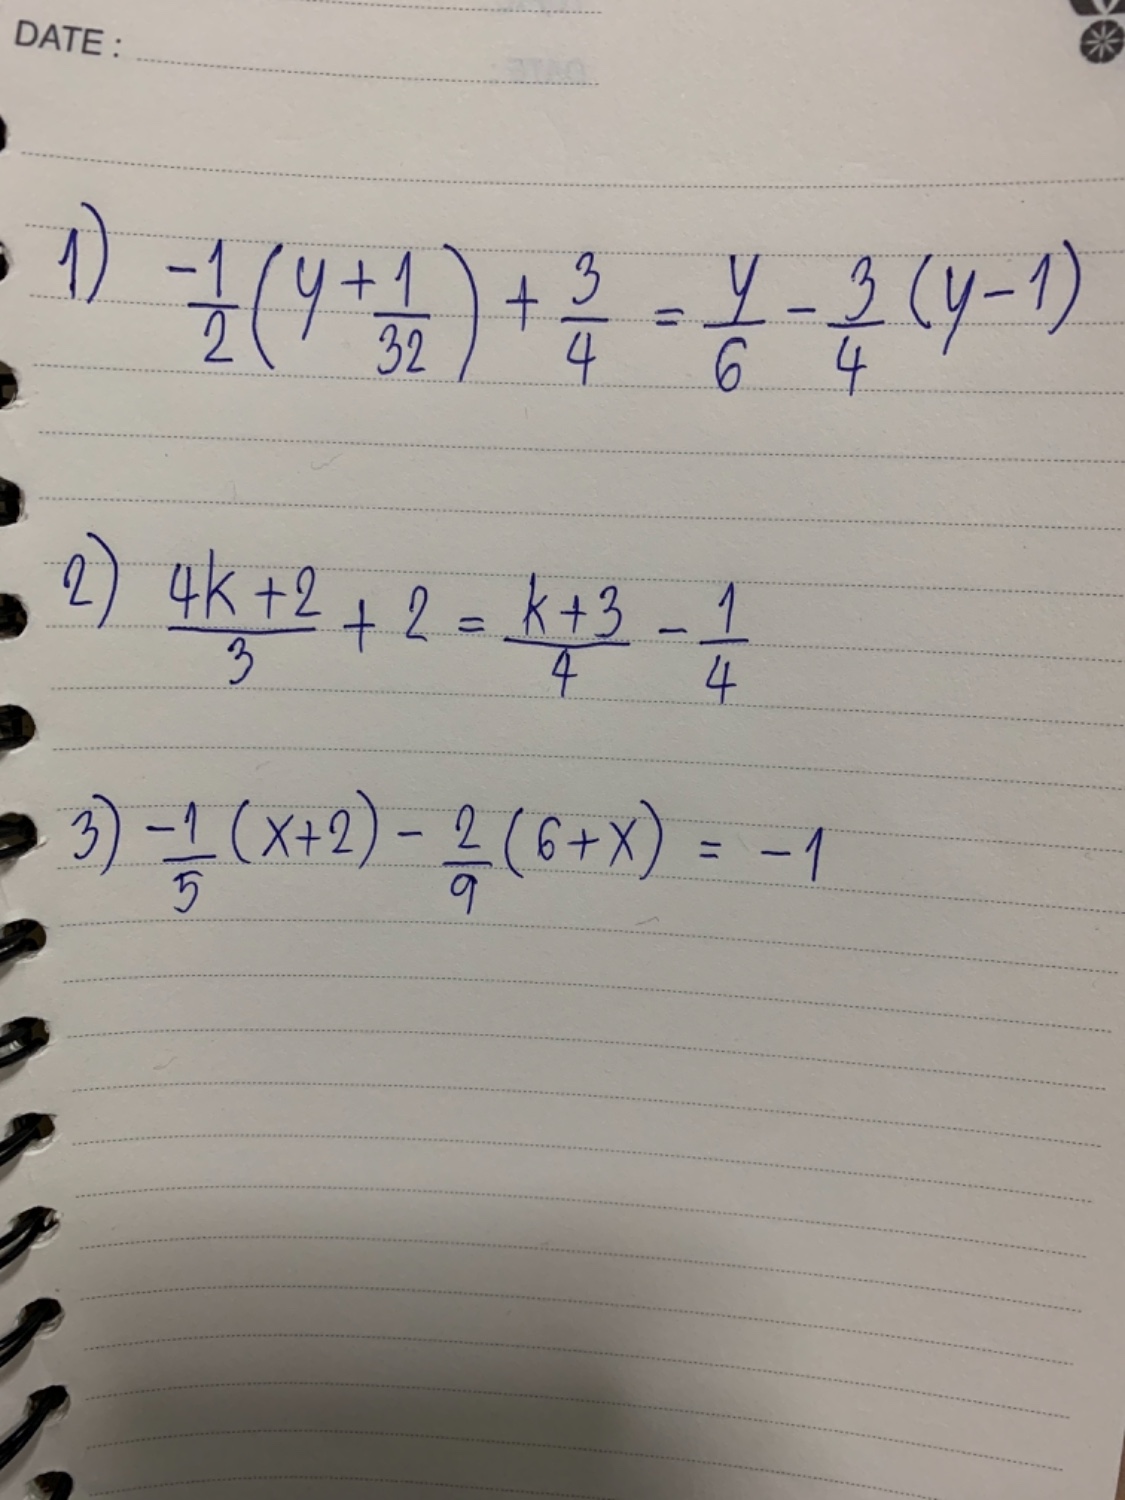 DATE :
1) -1/2 (y + 1/32) + 3/4 = y/6 - 3/4 (y-1)
2) 4k+2/3 + 2 = k+3/4 - 1/4
3) -1/5 (x+2) - 2/9 (6+x) = -1